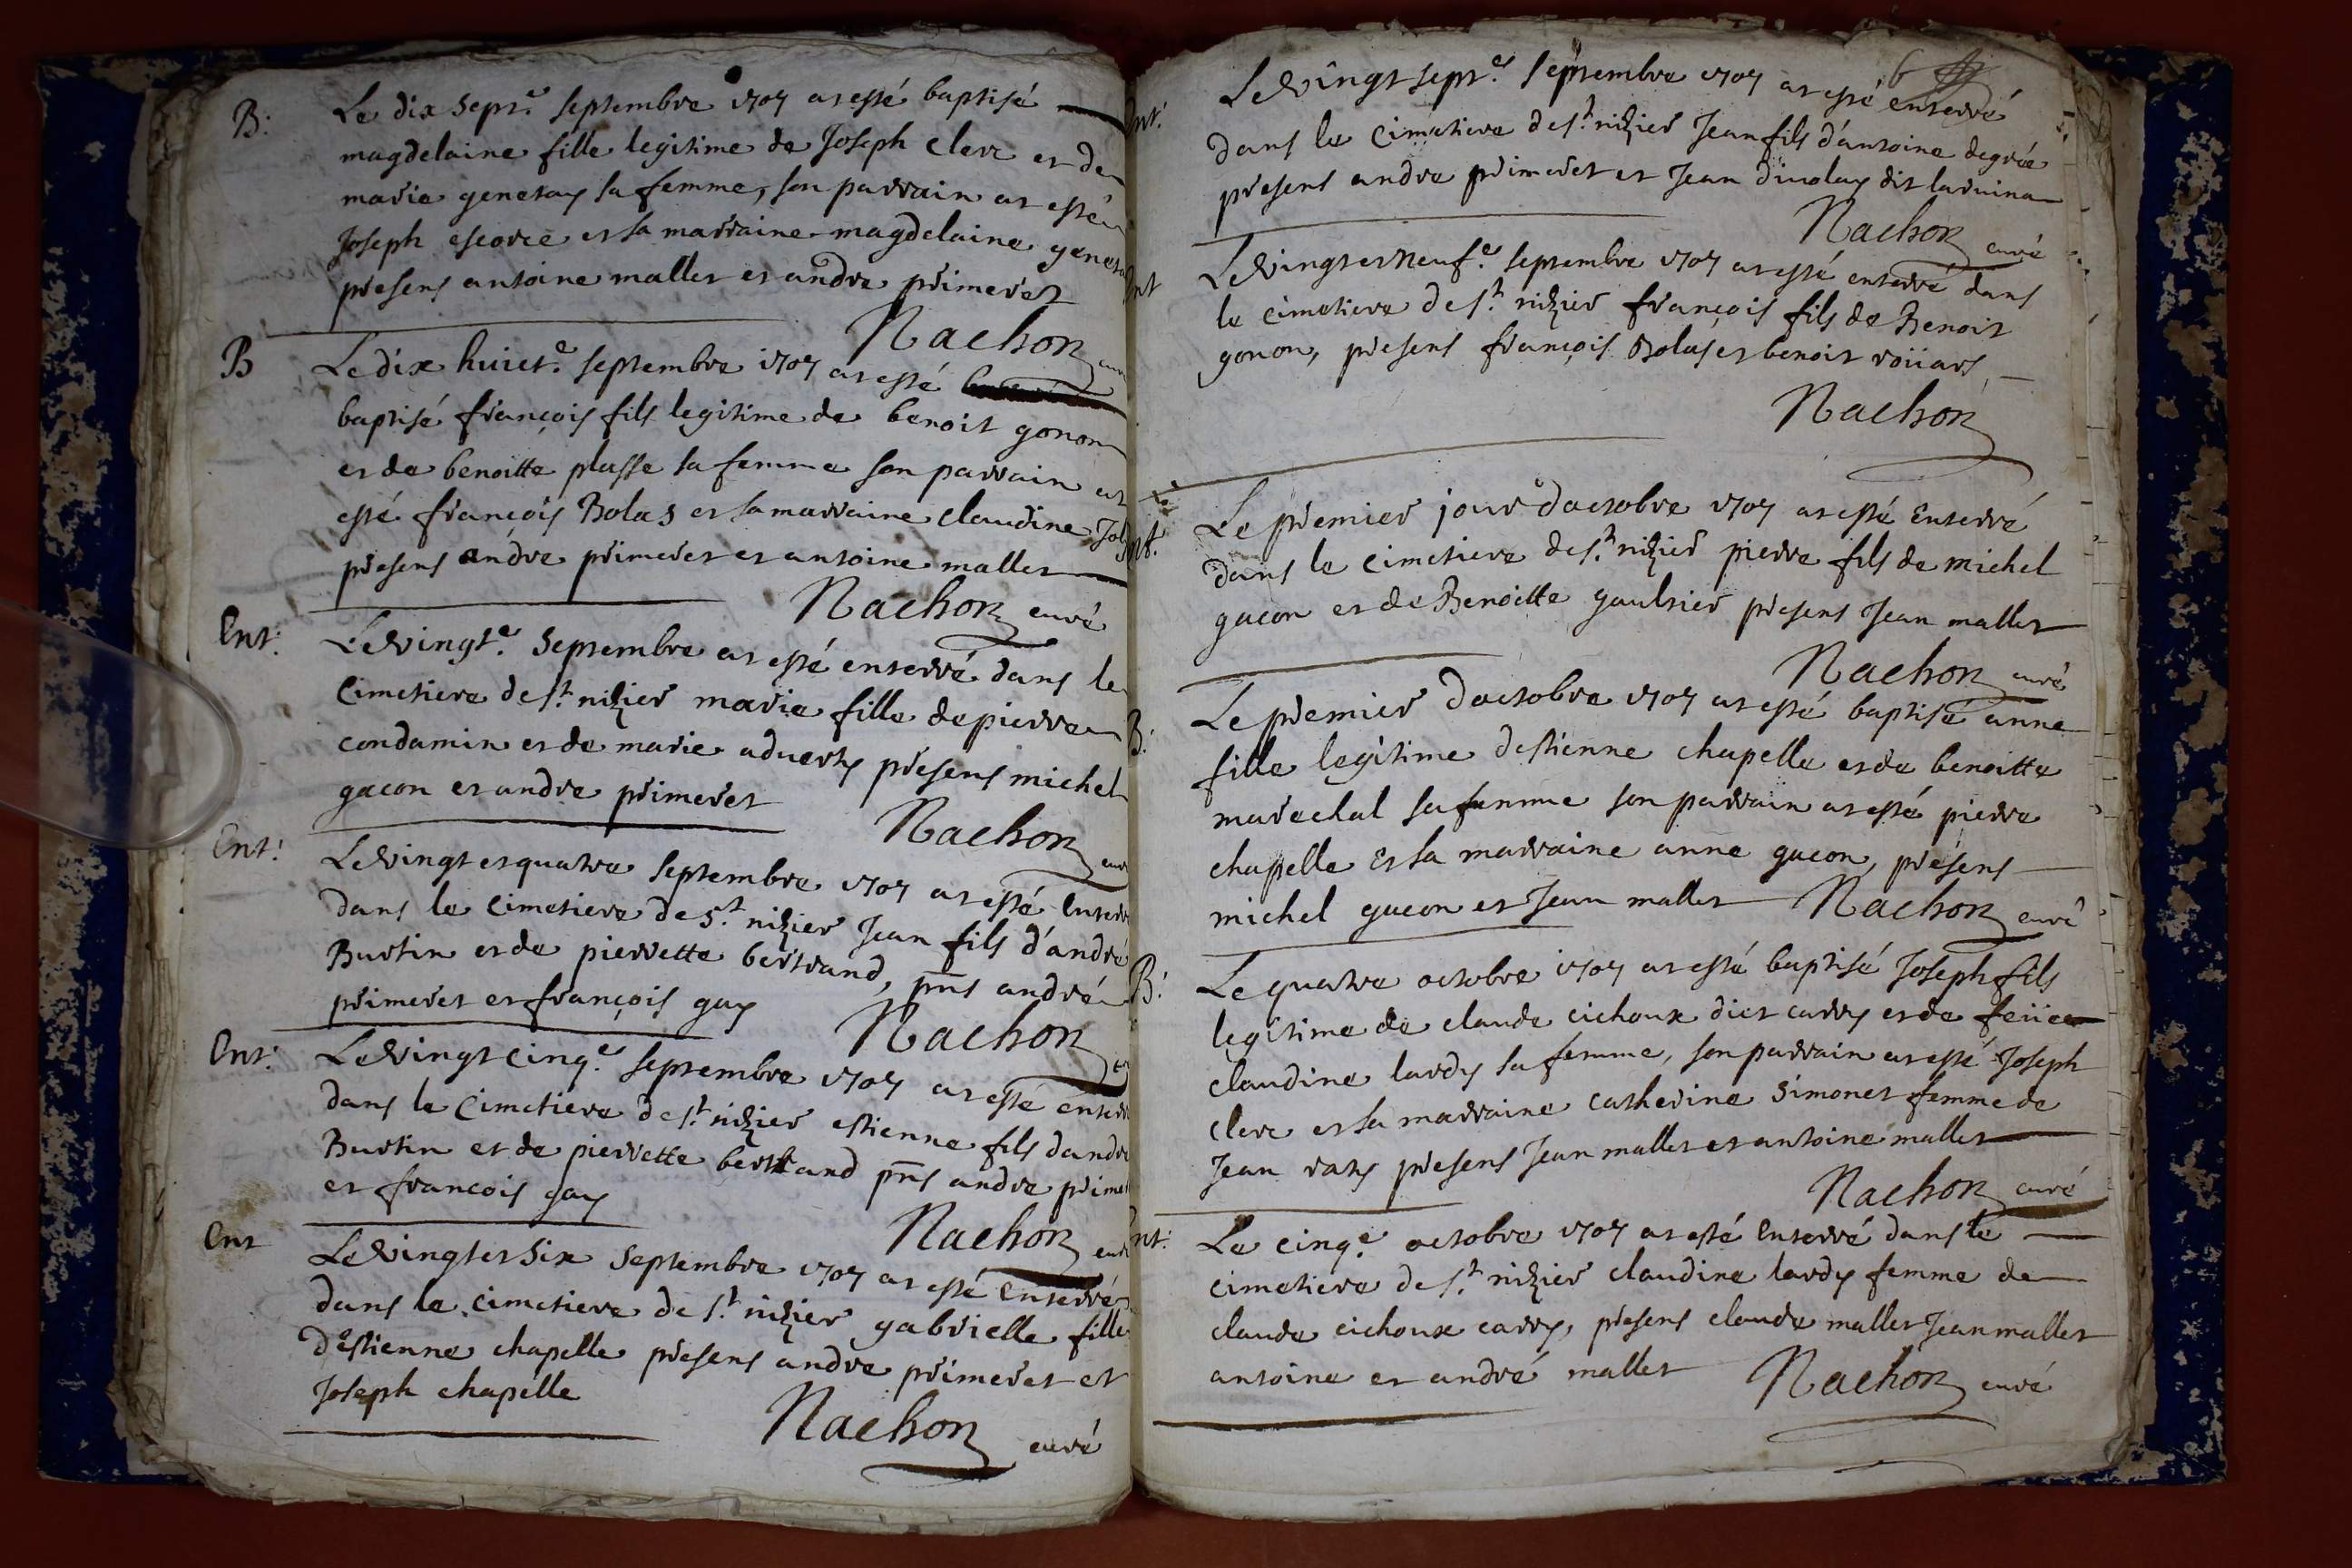 B: Le dix sept.e septembre 1707 at esté baptisé
magdelaine fille legitime de Joseph clerc et de
marie genetay sa femme, son parrain at esté
Joseph escorce et sa marraine magdelaine
presens antoine mallet et andre primeret
Nachon
B Le dix huict.e septembre 1707 at esté
baptisé françois fils legitime de benoit gonon
et de benoitte plasse sa femme son parrain at
esté françois Bolas et sa marraine claudine
presens andre primeret et antoine mallet
Nachon curé
Ent: Le vingt.e Septembre at esté enterré dans le
Cimetiere de s.t nizier marie fille de pierre
condamin et de marie presens michel
gacon et andre primeret
Nachon
Ent: Le vingt et quatre septembre 1707 at esté
dans le cimetiere de s.t nizier Jean fils d'andré
Burtin et de pierrette bertrand, pñs andré
primeret et françois gay
Nachon
Ent: Le vingt cinq.e septembre 1707 at esté
dans le Cimetiere de s.t nizier estienne fils
Burtin et de pierrette bertrand pñs andre
et francois gay
Nachon
Ent Le vingt et Six Septembre 1707 at esté Enterré
dans le cimetiere de s.t nizier gabrielle fille
d'estienne chapelle presens andre primeret et
Joseph chapelle
Nachon curé
6
Le vingt sept.e septembre 1707 at esté enterré
dans le cimetiere de s.t nizier Jean fils d'antoine degrée
presens andre primeret et Jean dit
Nachon curé
Le vingt et neuf.e septembre 1707 at esté enterré dans
le cimetiere de s.t nizier françois fils de Benoit
gonon, presens françois Bolas et benoit
Nachon
Le premier jour d'actobre 1707 at esté Enterré
dans le cimetiere de s.t nizier pierre fils de michel
gacon et de Benoitte gaultier presens Jean mallet
Nachon curé
B: Le premier d'actobre 1707 at esté baptisé anne
fille legitime d'estienne chapelle et de benoitte
marechal sa femme son parrain at esté pierre
chapelle Et sa marraine anne gacon, presens
michel gacon et Jean mallet Nachon curé
B: Le quatre octobre 1707 at esté baptisé Joseph fils
legitime de claude cichoux dict carry et de
claudine lardy sa femme, son parrain at esté Joseph
clerc et sa marraine catherine Simonet femme de
Jean presens Jean mallet et antoine mallet
Nachon curé
Le cinq.e octobre 1707 at esté Enterré dans le
cimetiere de s.t nizier claudine lardy femme de
claude cichoux carry, presens claude mallet Jean mallet
antoine et andré mallet Nachon curé